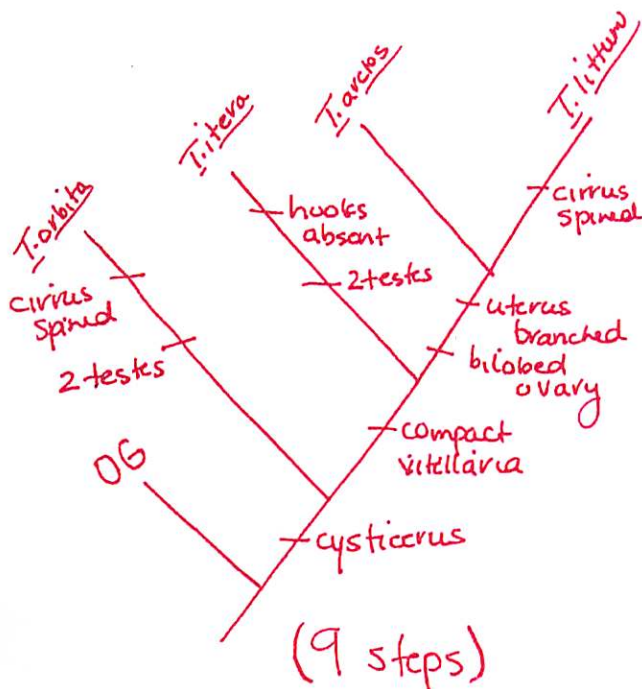 T. orbita
T. itera
T. arctos
T. littum
cirrus
spined
2 testes
OG
hooks
absent
2 testes
cirrus
spined
uterus
branched
bilobed
ovary
compact
vitellaria
cysticerus
(9 steps)